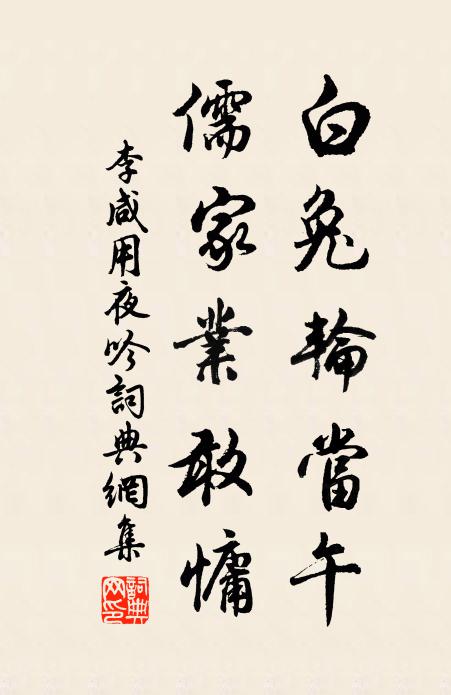 白兔輪當午
儒家業敢慵
李咸用夜吟詞典網集
詞典網印